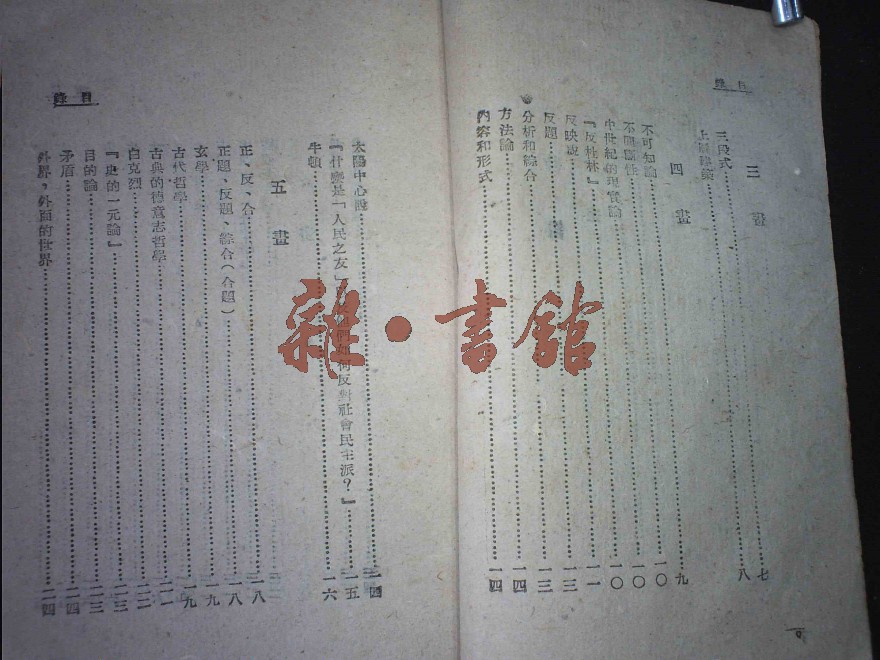 目錄
三畫
三段式……七
上層建築……八
四畫
不可知論……九
不間斷性……一〇
中世紀的現實論……一〇
『反杜林』……一一
反映說……一三
反題……一三
分析和綜合……一四
方法論……一四
內容和形式……一四
目錄
太陽中心說……一四
『什麼是「人民之友」 們如何反對社會民主派?』……一五
牛頓……一六
五畫
正、反、合……一八
正題、反題、綜合(合題)……一八
玄學……一九
古代哲學……一九
古典的德意志哲學……二一
白克烈……二二
『史的一元論』……二三
目的論……二三
矛盾……二四
外界,外面的世界……二四
雜·書館